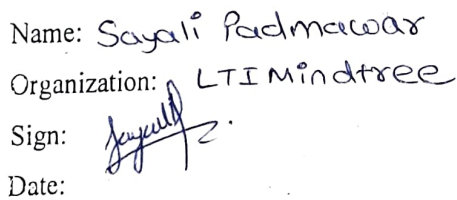 Name: Sayali Padmawar
Organization: LTIMindtree
Sign:
Date: